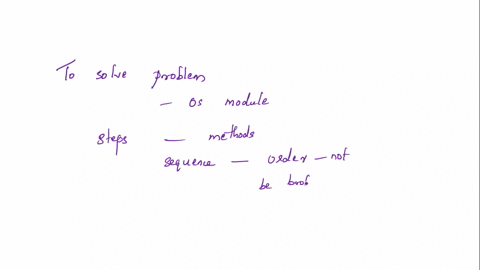 To solve problem
- os module
steps - methods
sequence - order - not
be